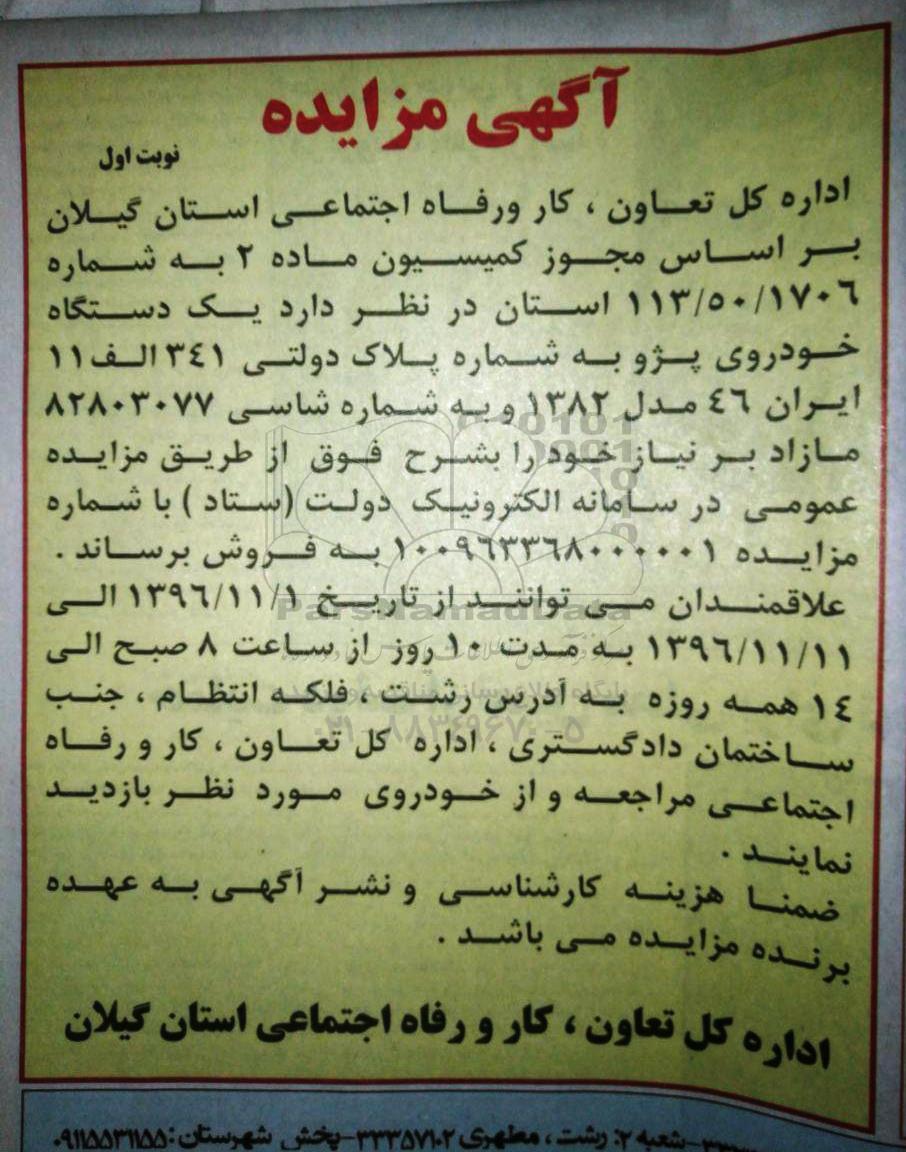 آگهی مزایده
نوبت اول
اداره کل تعاون ، کار ورفاه اجتماعی استان گیلان
بر اساس مجوز کمیسیون ماده ۲ به شماره
۱۱۳/۵۰/۱۷۰۶ استان در نظر دارد یک دستگاه
خودروی پژو به شماره پلاک دولتی ۳۴۱ الف۱۱
ایران ۴۶ مدل ۱۳۸۲ و به شماره شاسی ۸۲۸۰۳۰۷۷
مازاد بر نیاز خود را بشرح فوق از طریق مزایده
عمومی در سامانه الکترونیک دولت (ستاد ) با شماره
مزایده ۱۰۰۹۶۳۳۶۸۰۰۰۰۰۱ به فروش برساند .
علاقمندان می توانند از تاریخ ۱۳۹۶/۱۱/۱ الی
۱۳۹۶/۱۱/۱۱ به مدت ۱۰ روز از ساعت ۸ صبح الی
۱۴ همه روزه به آدرس رشت ، فلکه انتظام ، جنب
ساختمان دادگستری ، اداره کل تعاون ، کار و رفاه
اجتماعی مراجعه و از خودروی مورد نظر بازدید
نمایند .
ضمنا هزینه کارشناسی و نشر آگهی به عهده
برنده مزایده می باشد .
اداره کل تعاون ، کار و رفاه اجتماعی استان گیلان
ParsNamadData
۰۲۱-۸۸۳۴۹۶۷۰-۵
-شعبه ۲: رشت ، مطهری ۳۳۳۵۷۱۰۲-پخش شهرستان: ۰۹۱۱۵۵۳۱۱۵۵